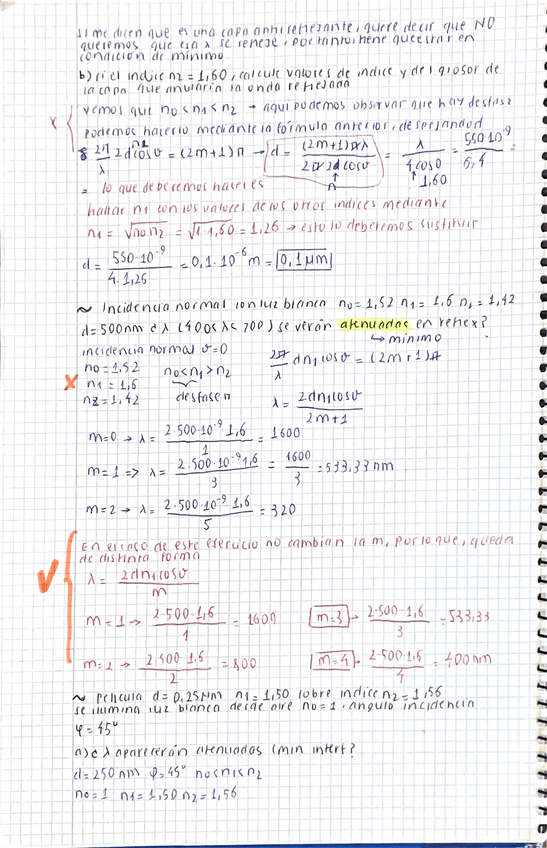 si me dicen que es una capa antirreflejante, quiere decir que NO
queremos que esa λ se refleje, por tanto, tiene que estar en
condición de mínimo.
b) si el índice n2 = 1,60, calcule valores de índice y del grosor de
la capa que anularía la onda reflejada
x vemos que n0<n1<n2 → aquí podemos observar que hay desfase
podemos hacerlo mediante la fórmula anterior, despejando d
2π/λ 2d cosσ = (2m+1)π → d = (2m+1)πλ / 2π 2d cosσ = λ / 4cosσ = 550·10⁻⁹ / 6,4 =
n
↑ 1,60
= lo que deberemos hacer es
hallar n1 con los valores de los otros índices mediante
n1 = √n0 n2 = √1·1,60 = 1,26 → esto lo deberemos sustituir
d = 550·10⁻⁹ / 4·1,26 = 0,1·10⁻⁶ m = 0,1 μm
~ Incidencia normal con luz blanca n0 = 1,52 n1 = 1,6 n2 = 1,42
d = 500nm ¿λ (400<λ<700) se verán atenuadas en reflex?
↳ mínimo
incidencia normal σ=0
n0 = 1,52 n0<n1>n2 2π/λ dn1 cosσ = (2m+1)π
x n1 = 1,6
n2 = 1,42 desfase π λ = 2dn1cosσ / 2m+1
m=0 → λ = 2·500·10⁻⁹·1,6 / 1 = 1600
m=1 => λ = 2·500·10⁻⁹·1,6 / 3 = 1600/3 = 533,33 nm
m=2 → λ = 2·500·10⁻⁹·1,6 / 5 = 320
En el caso de este ejercicio no cambian la m, por lo que, queda
de distinta forma
λ = 2dn1cosσ / m
m=1 → 2·500·1,6 / 1 = 1600 m=3 → 2·500·1,6 / 3 = 533,33
m=2 → 2·500·1,6 / 2 = 800 m=4 → 2·500·1,6 / 4 = 400nm
~ Película d = 0,25μm n1 = 1,50 sobre índice n2 = 1,56
se ilumina luz blanca desde aire n0=1. ángulo incidencia
φ = 45º
a) ¿λ aparecerán atenuadas (min interf?
d=250nm φ=45º n0<n1<n2
n0=1 n1=1,50 n2=1,56